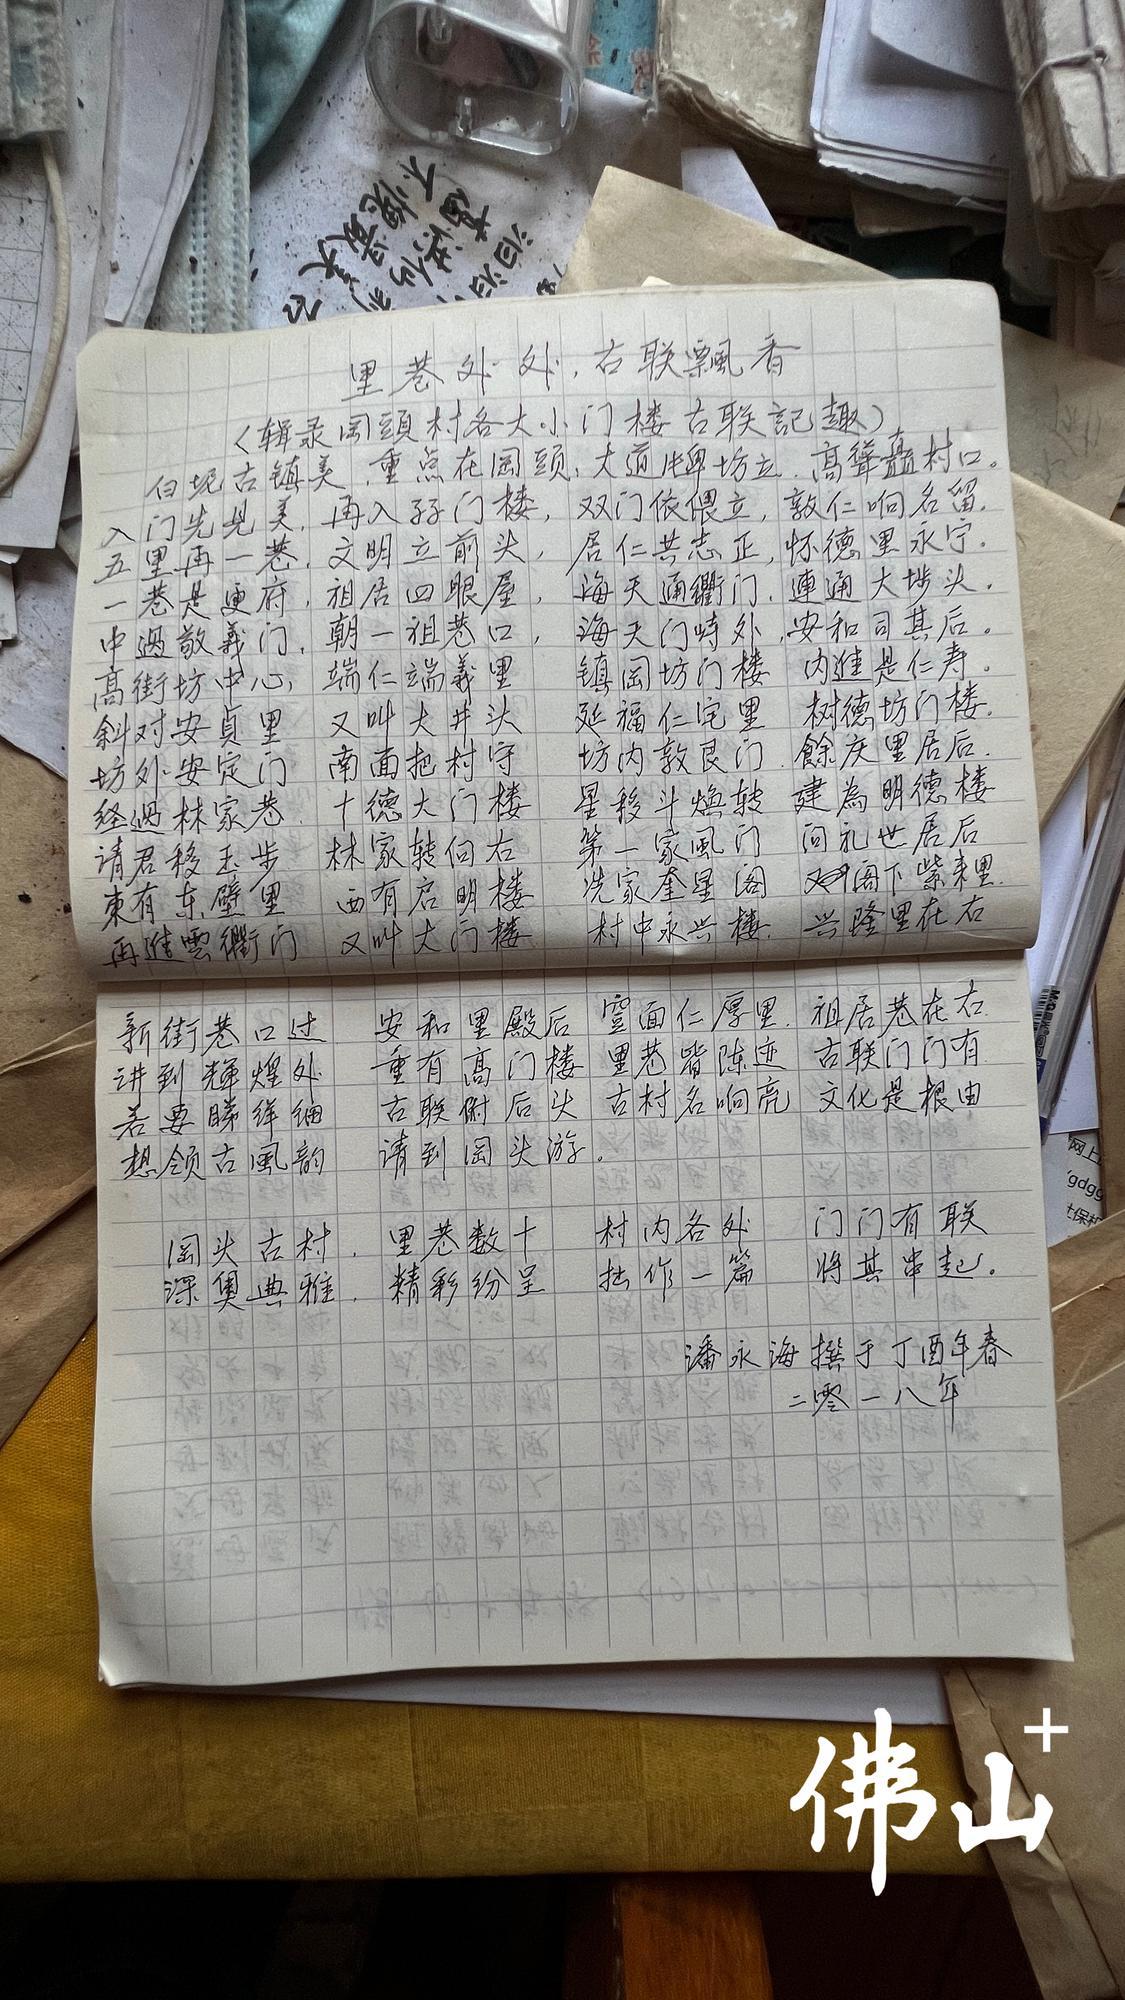 不愧最美
里巷处处，古联飘香
（辑录岡頭村各大小门楼古联記趣）
白坭古镇美，重点在岡頭，大道牌坊立，高聳矗村口。
入门先見美，再入孖门楼，双门依偎立，敦仁响名留，
五里再一巷，文明立前头，居仁共志正，怀德里永宁。
一巷是更府，祖居四眼屋，海天通衢门，連通大埗头，
中過敬義门，朝一祖巷口，海天门埼外，安和司其后。
高街坊中心，端仁端義里 镇岡坊门楼 内進是仁寿。
斜对安貞里 又叫大井头 延福仁宅里 树德坊门楼，
坊外安定门 南面把村守 坊内敦良门 餘庆里居后，
经過林家巷 十德大门楼 星移斗焕转 建為明德楼
请君移玉步 林家转向右 第一家風门 问礼世居后
東有东壁里 西有启明楼 冼家奎星阁 阁下紫来里
再進雲衢门 又叫大门楼 村中永兴楼 兴隆里在右
新街巷口过 安和里殿后 壹面仁厚里 祖居巷在右
讲到輝煌处 重有高门楼 里巷皆陈迹 古联门门有
若要睇详细 古联附后头 古村名响亮 文化是根由
想领古風韵 请到岡头游。
岡头古村，里巷数十 村内各处 门门有联
深奥典雅，精彩纷呈 拙作一篇 将其串起。
潘永海撰于丁酉年春
二零一八年
网上
gdgg
佛山+